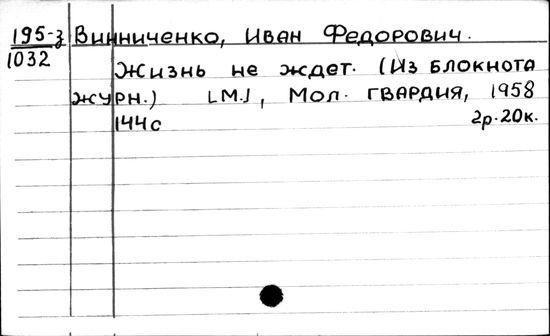 195-з Винниченко, Иван Федорович.
1032
Жизнь не ждет. (Из блокнота
журн.) [М.], Мол. гвардия, 1958
144с 2р.20к.